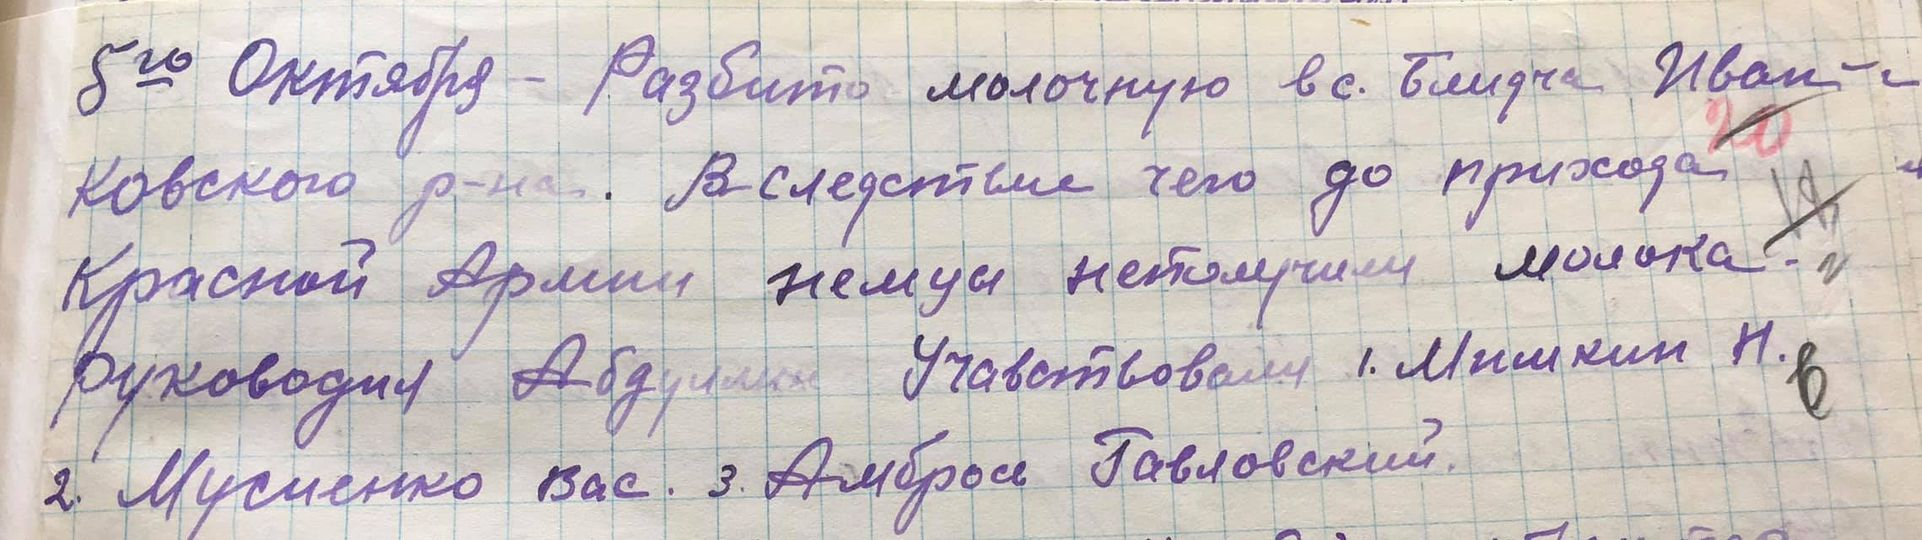 5го Октября - Разбито молочную в с. Блидча Иван-
ковского р-на. Вследствие чего до прихода
Красной Армии немцы неполучили молока -
руководил Абдулин Учавствовали 1. Мишкин Н.
2. Мусиенко Вас. 3. Амброс Павловский.
20